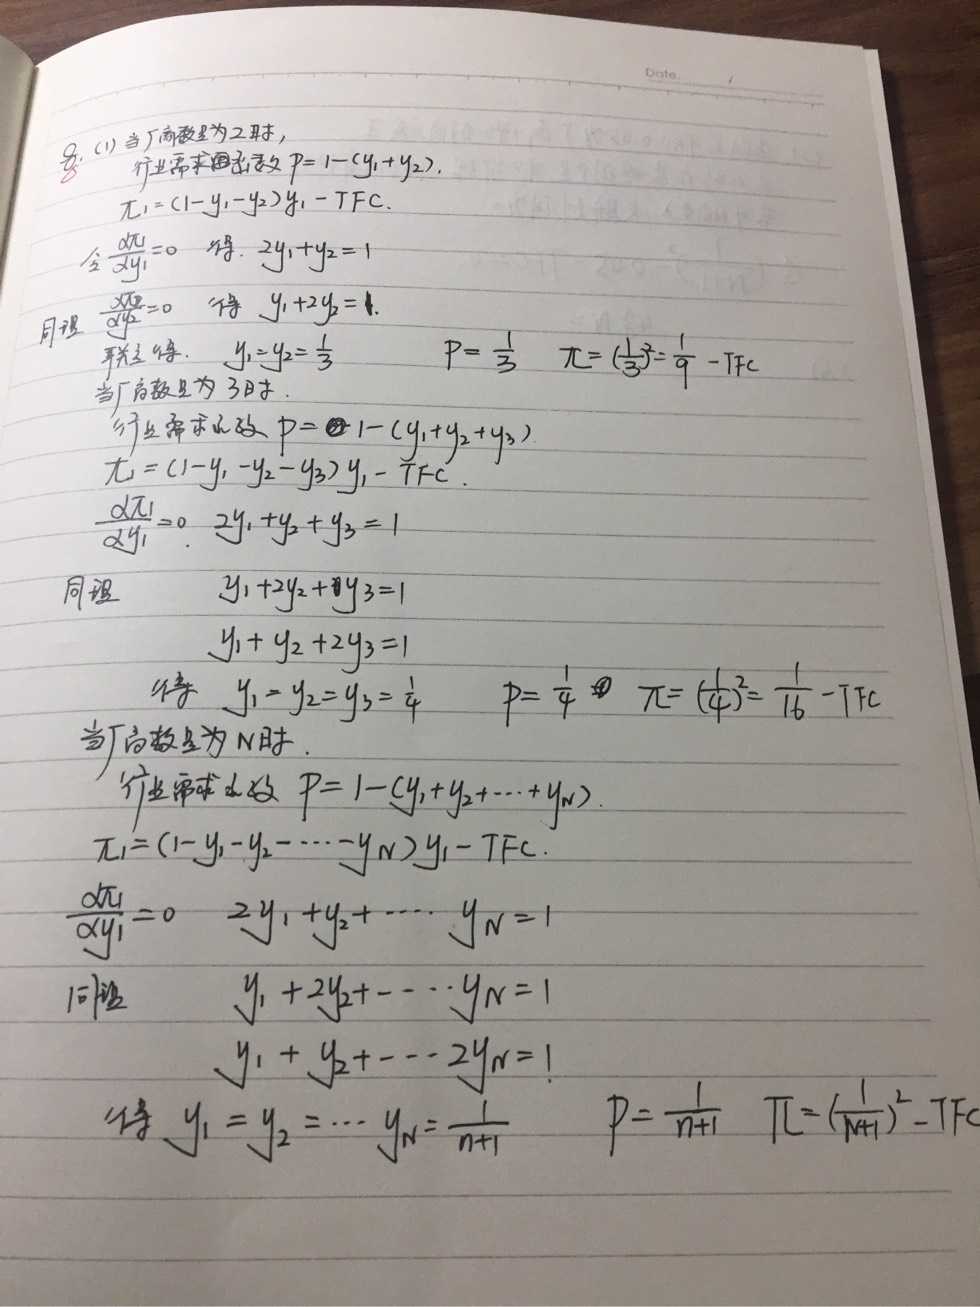 Date.
8. (1) 当厂商数量为2时,
行业需求函数 P=1-(y₁+y₂).
π₁=(1-y₁-y₂)y₁-TFC.
令 dπ₁/dy₁=0 得. 2y₁+y₂=1
同理 dπ₂/dy₂=0 得 y₁+2y₂=1.
联立得. y₁=y₂=1/3 P=1/3 π=(1/3)²=1/9-TFC
当厂商数量为3时.
行业需求函数 P=1-(y₁+y₂+y₃)
π₁=(1-y₁-y₂-y₃)y₁-TFC.
dπ₁/dy₁=0. 2y₁+y₂+y₃=1
同理 y₁+2y₂+y₃=1
y₁+y₂+2y₃=1
得 y₁=y₂=y₃=1/4 P=1/4 π=(1/4)²=1/16-TFC
当厂商数量为N时.
行业需求函数 P=1-(y₁+y₂+…+yN).
π₁=(1-y₁-y₂-…-yN)y₁-TFC.
dπ₁/dy₁=0 2y₁+y₂+…yN=1
同理 y₁+2y₂+…yN=1
y₁+y₂+…2yN=1
得 y₁=y₂=…yN=1/(n+1) P=1/(n+1) π=(1/(N+1))²-TFC